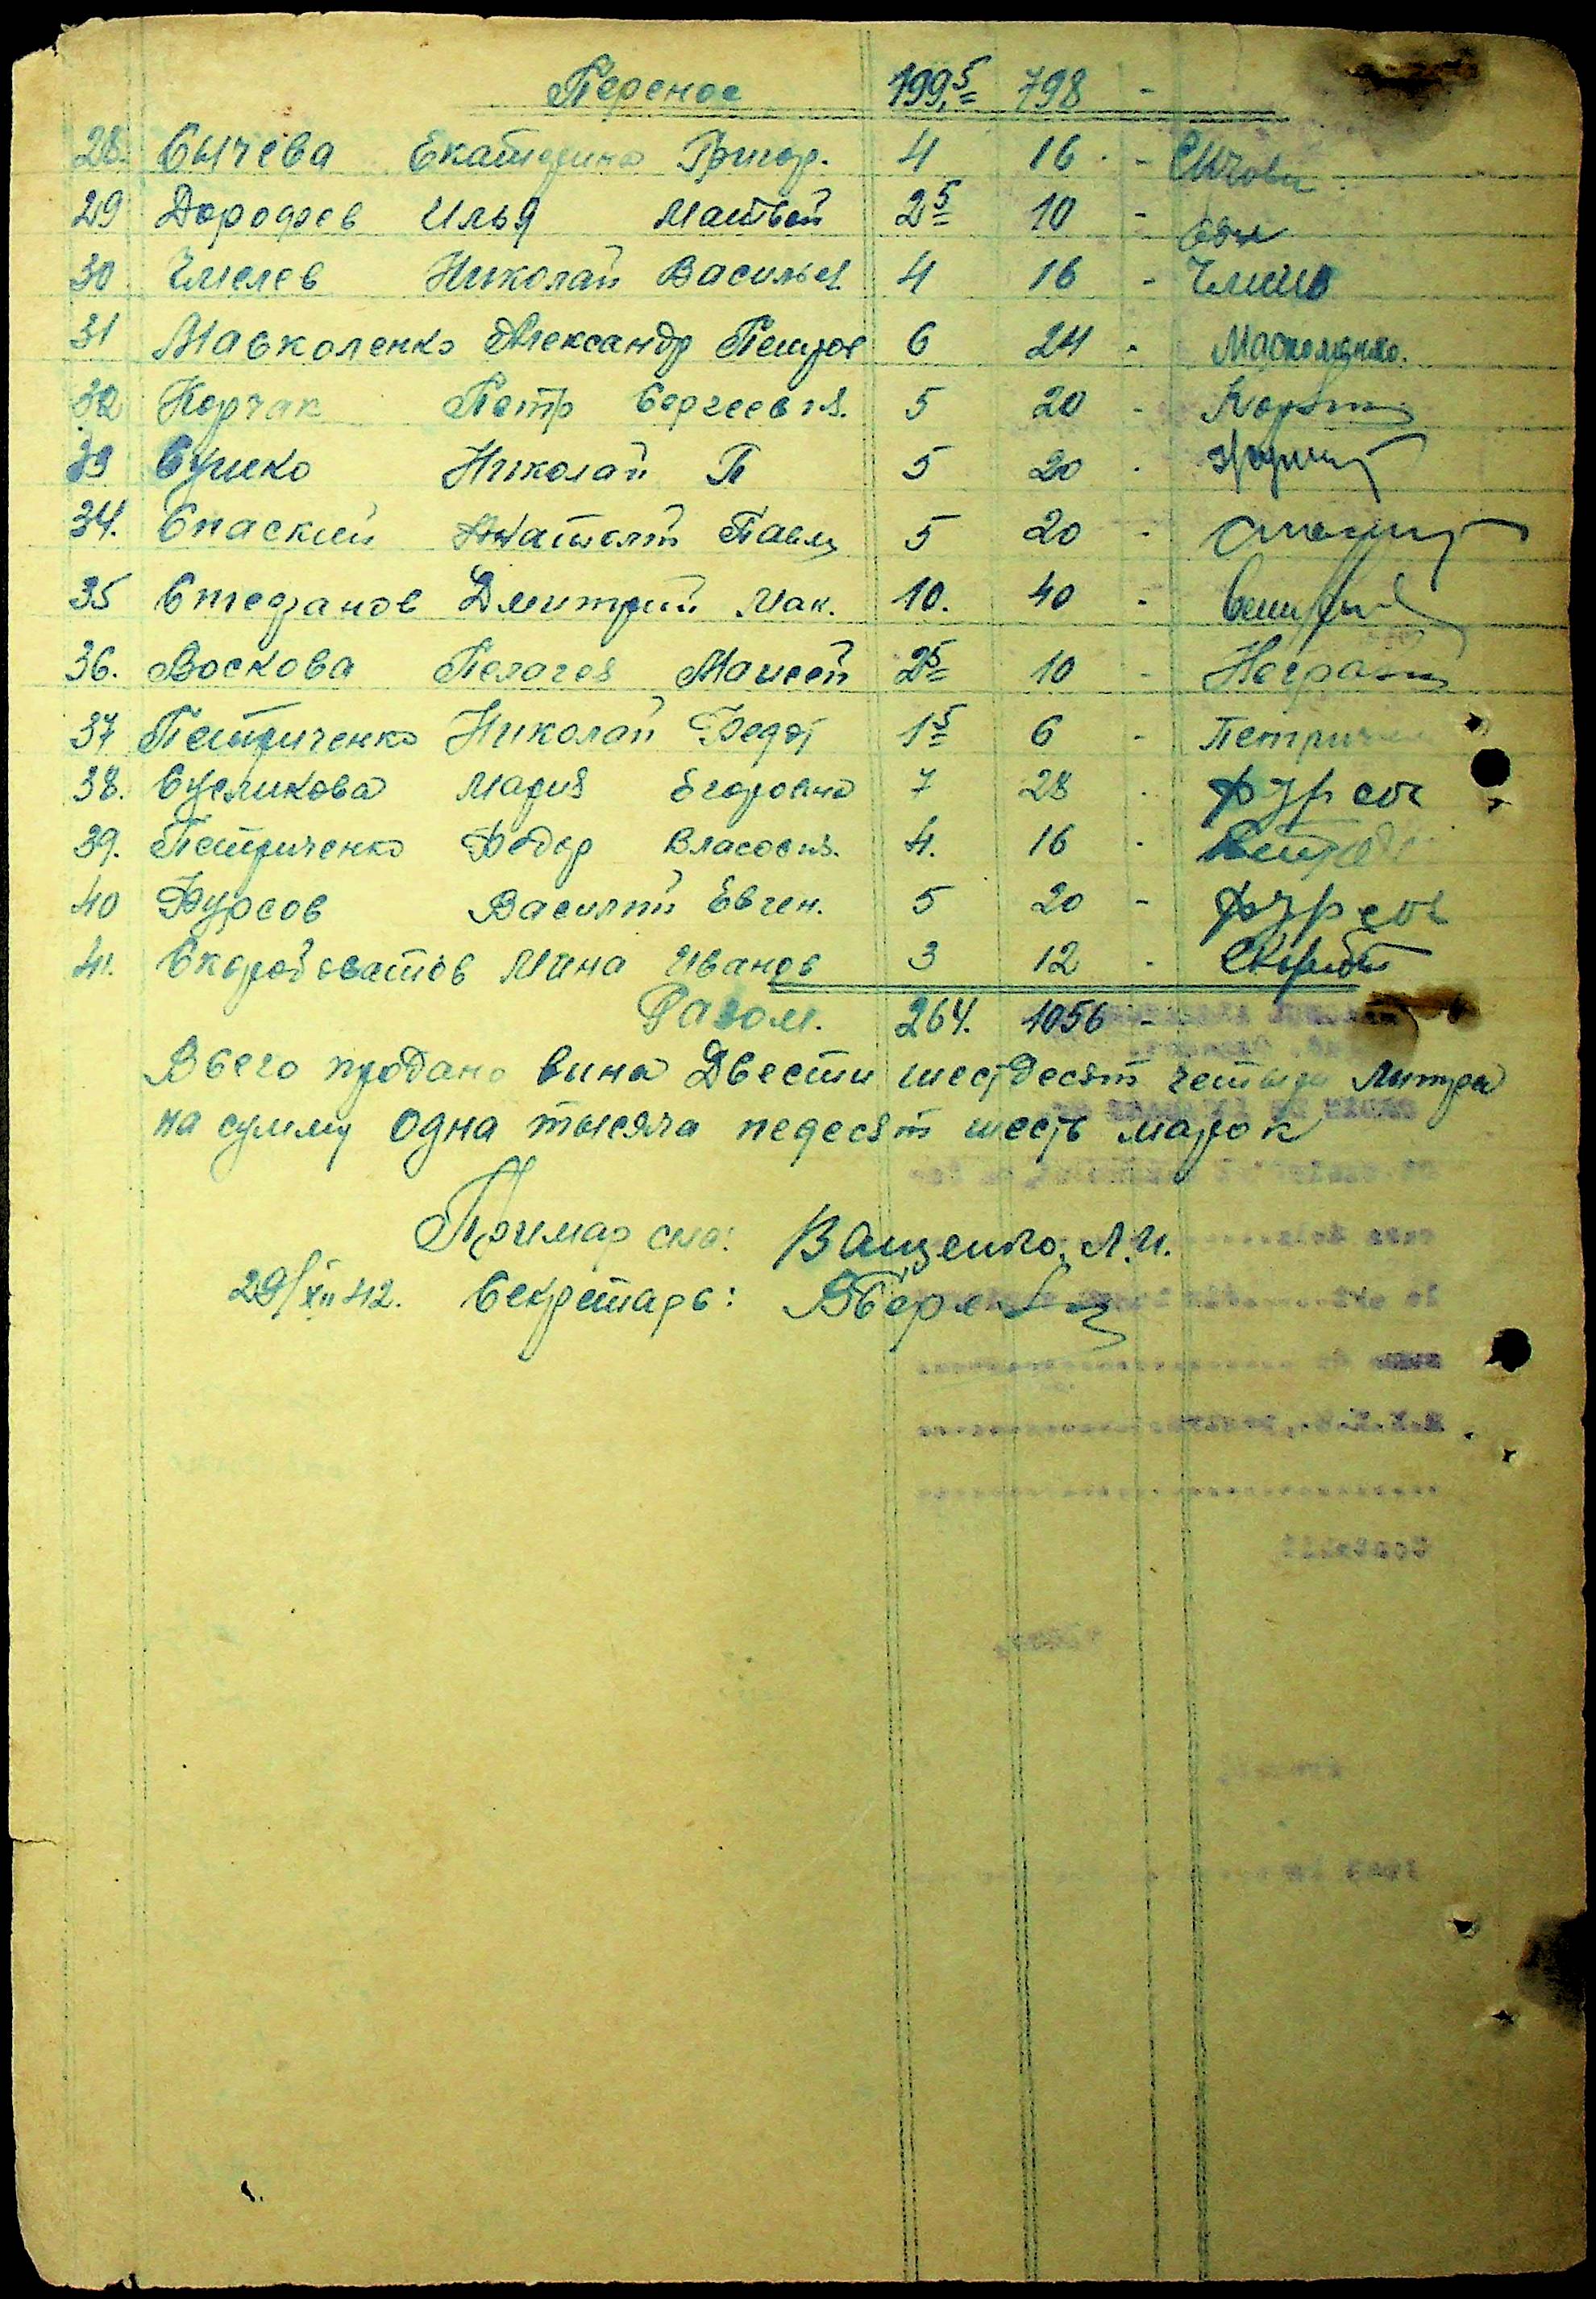 Перенос 199,5 798 -
28. Сычева Екатерина Григор. 4 16 - Сичова
29 Дорофеев Илья Матвей 2 5 10 -
30 Чмелев Николай Василье 4 16 -
31 Москоленко Александр Петров 6 24 - Москоленко.
32 Корчак Петр Сергеевич. 5 20 -
33 Сушко Николай П 5 20 -
34. Спаский Анатолий Павл 5 20 -
35 Стефанов Дмитрий Мак. 10. 40 -
36. Воскова Пелагея Моисей 2 5 10 -
37 Петриченко Николай Федот 1 5 6 - Петричен
38. Сусликова Мария Егоровна 7 28 - Фурсов
39. Петриченко Федор Власович. 4. 16 -
40 Фурсов Василий Евген. 5 20 - Фурсов
41. Скоробоватов Мина Иванов 3 12 -
Разом. 264. 1056 -
Всего продано вина Двести шестдесят четыри Литра
на сумму одна тысяча педесят шесть марок
Примар Ващенко. Л.И.
29/XII 42. Секретарь: